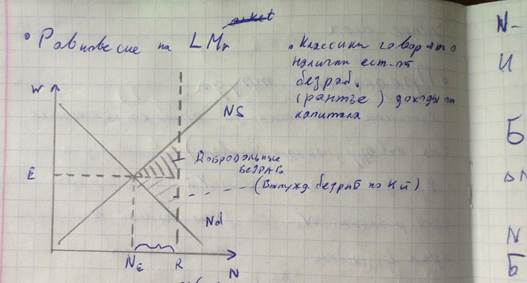 • Равновесие на LMr
market
• Классики говорят о
наличии ест-ой
безраб.
(рантье) доходы от
капитала
W
NS
Добровольные
безраб.
E
(Вынужд безраб по
Nd
NE
R
N
N-
И
Б
N
Б